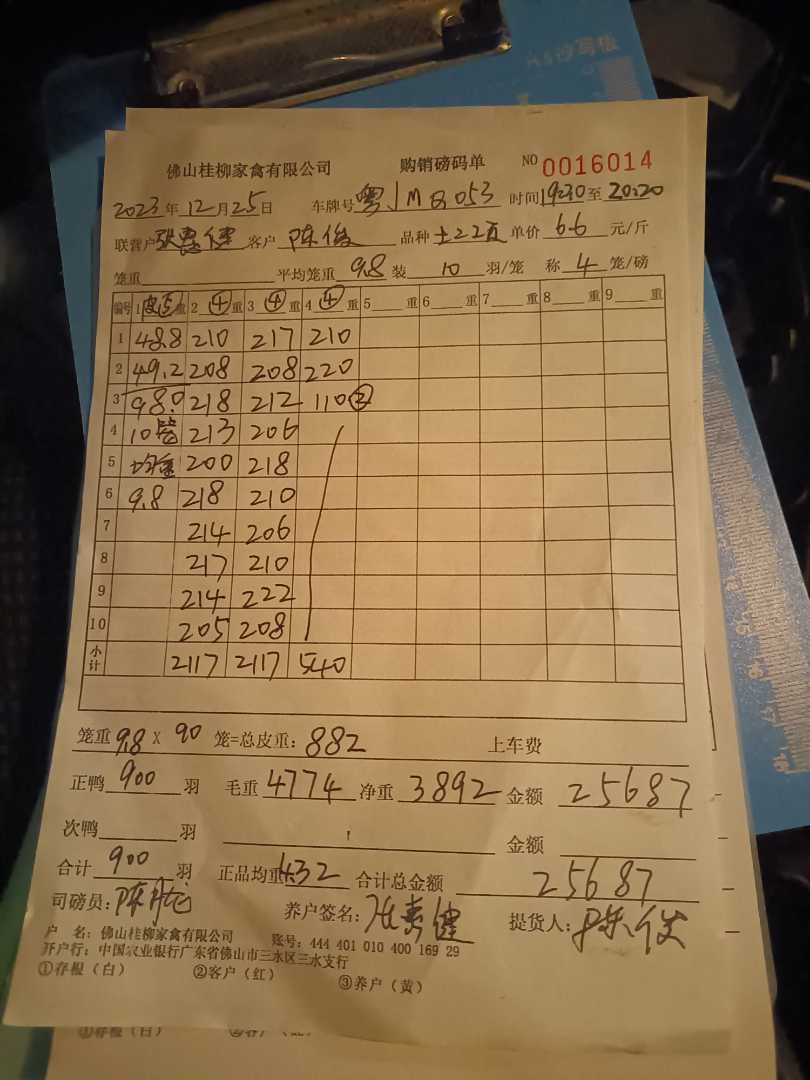 佛山桂柳家禽有限公司 购销磅码单 NO 0016014
2023年12月25日 车牌号粤JMQ053 时间19:30至20:20
联营户张惠健 客户 陈俊 品种土22页 单价 6.6 元/斤
笼重 平均笼重 9.8 装 10 羽/笼 称 4 笼/磅
编号 1皮⑤重 2 ④ 重 3 ④ 重 4 ④ 重 5 重 6 重 7 重 8 重 9 重
1 48.8 210 217 210
2 49.2 208 208 220
3 98.0 218 212 110②
4 10笼 213 206
5 均重 200 218
6 9.8 218 210
7 214 206
8 217 210
9 214 222
10 205 208
小计 2117 2117 540
笼重 9.8 X 90 笼=总皮重: 882 上车费
正鸭 900 羽 毛重 4774 净重 3892 金额 25687
次鸭 羽 金额
合计 900 羽 正品均重 4.32 合计总金额 25687
司磅员: 陈 养户签名: 张惠健 提货人: 陈俊
户 名: 佛山桂柳家禽有限公司 账号: 444 401 010 400 169 29
开户行: 中国农业银行广东省佛山市三水区三水支行
①存根(白) ②客户(红) ③养户(黄)
①存根(白)